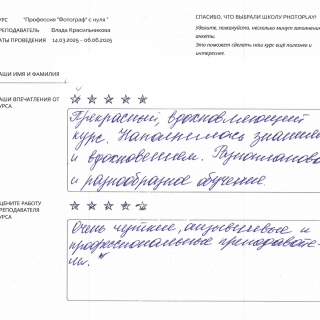 УРС "Профессия "Фотограф" с нуля"
РЕПОДАВАТЕЛЬ Влада Красильникова
АТЫ ПРОВЕДЕНИЯ 14.03.2025 - 06.06.2025
СПАСИБО, ЧТО ВЫБРАЛИ ШКОЛУ PHOTOPLAY!
Уделите, пожалуйста, несколько минут заполнению
анкеты.
Это поможет сделать наш курс ещё полезнее и
интереснее.
АШИ ИМЯ И ФАМИЛИЯ
АШИ ВПЕЧАТЛЕНИЯ ОТ
УРСА
Прекрасный, вдохновляющий
курс. Наполнилась знаниями
и вдохновением. Разноплановое
и разнообразное обучение.
ЦЕНИТЕ РАБОТУ
РЕПОДАВАТЕЛЯ
УРСА
Очень чуткие, отзывчивые и
профессиональные преподавате-
ли.